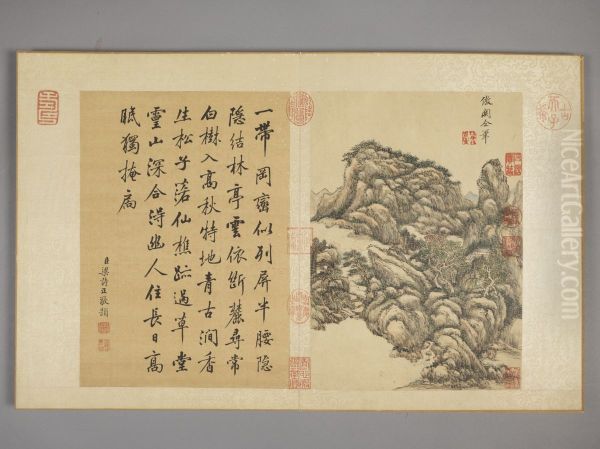 倣關仝筆
一帶岡巒似列屏半腰隱
隱結林亭雲依斷麓尋常
白樹入高秋特地青古澗香
生松子落仙樵跡過草堂
靈山深合得幽人住長日高
眠獨掩扃
臣梁詩正敬題
NiceArtGallery.com